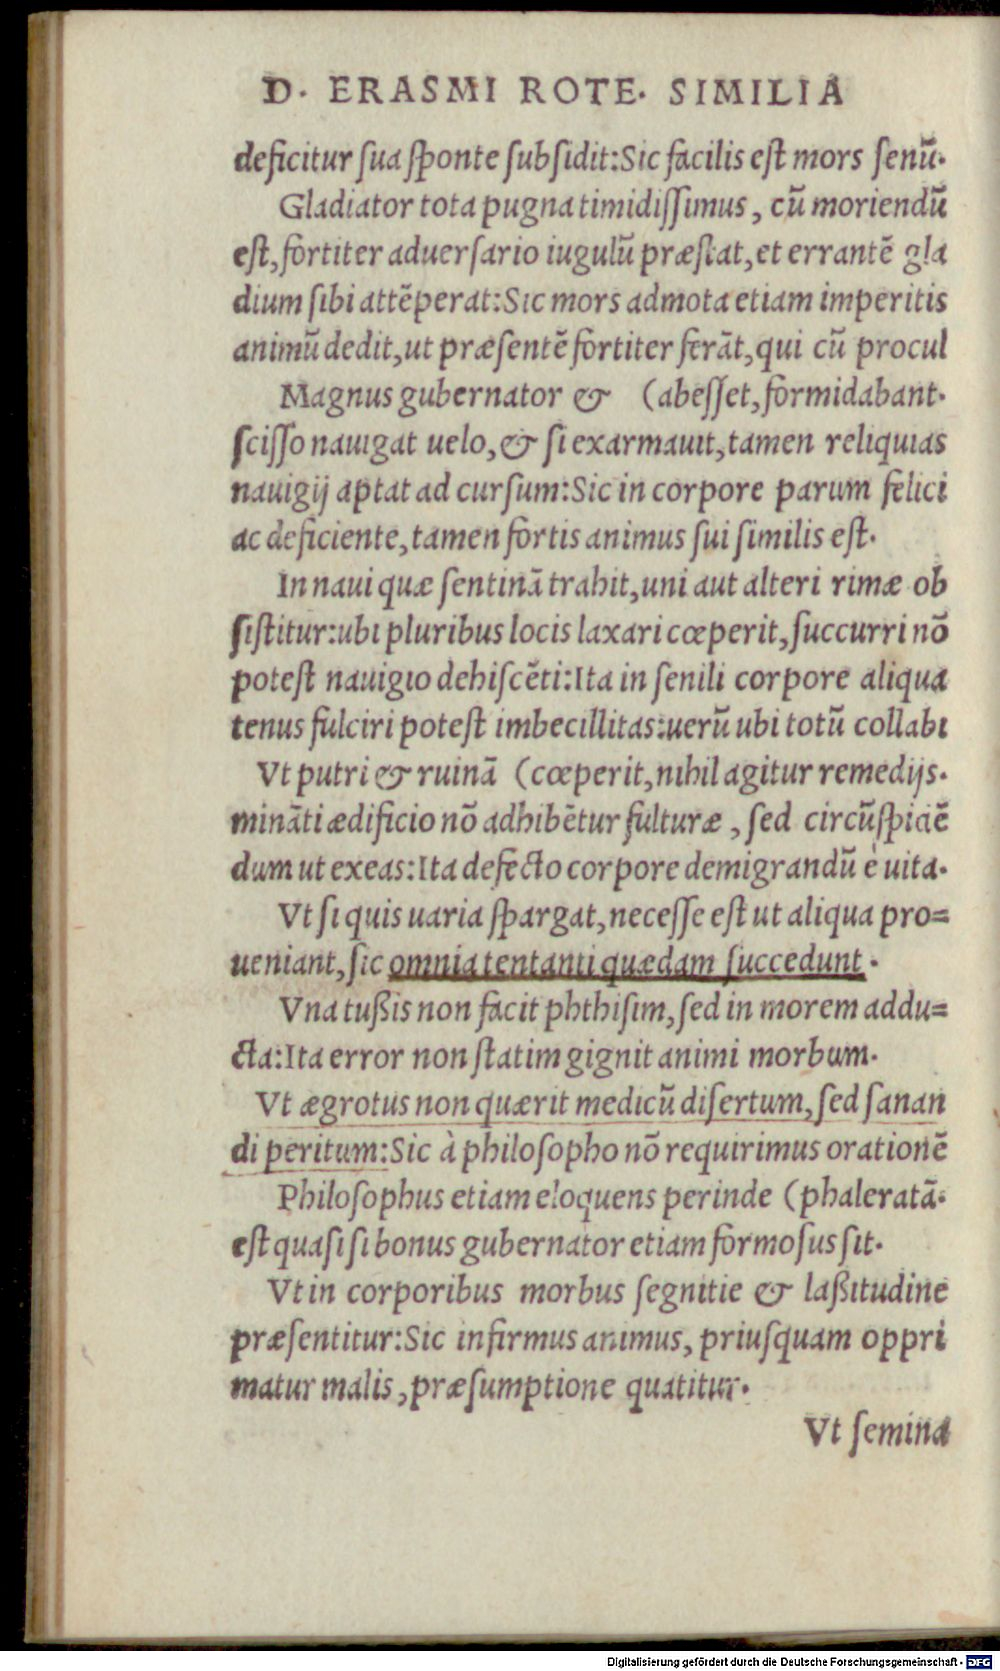 D. ERASMI ROTE. SIMILIA
deficitur sua ſponte ſubſidit:Sic facilis eſt mors ſenū.
Gladiator tota pugna timidiſſimus, cū moriendū
eſt, fortiter aduerſario iugulū præſtat, et errantē gla
dium ſibi attēperat:Sic mors admota etiam imperitis
animū dedit, ut præſentē fortiter ferāt, qui cū procul
Magnus gubernator & (abeſſet, formidabant.
ſciſſo nauigat uelo, & ſi exarmauit, tamen reliquias
nauigij aptat ad curſum:Sic in corpore parum felici
ac deficiente, tamen fortis animus ſui ſimilis eſt.
In naui quæ ſentinā trahit, uni aut alteri rimæ ob
ſiſtitur:ubi pluribus locis laxari cœperit, ſuccurri nō
poteſt nauigio dehiſcēti:Ita in ſenili corpore aliqua
tenus fulciri poteſt imbecillitas:uerū ubi totū collabi
Vt putri & ruinā (cœperit, nihil agitur remedijs.
mināti ædificio nō adhibētur fulturæ, ſed circūſpiciē
dum ut exeas:Ita defecto corpore demigrandū è uita.
Vt ſi quis uaria ſpargat, neceſſe eſt ut aliqua pro=
ueniant, ſic omnia tentanti quædam ſuccedunt.
Vna tußis non facit phthiſim, ſed in morem addu=
cta:Ita error non ſtatim gignit animi morbum.
Vt ægrotus non quærit medicū diſertum, ſed ſanan
di peritum:Sic à philoſopho nō requirimus orationē
Philoſophus etiam eloquens perinde (phaleratā.
eſt quaſi ſi bonus gubernator etiam formoſus ſit.
Vt in corporibus morbus ſegnitie & laßitudine
præſentitur:Sic infirmus animus, priuſquam oppri
matur malis, præſumptione quatitur.
Vt ſemina
Digitalisierung gefördert durch die Deutsche Forschungsgemeinschaft - DFG